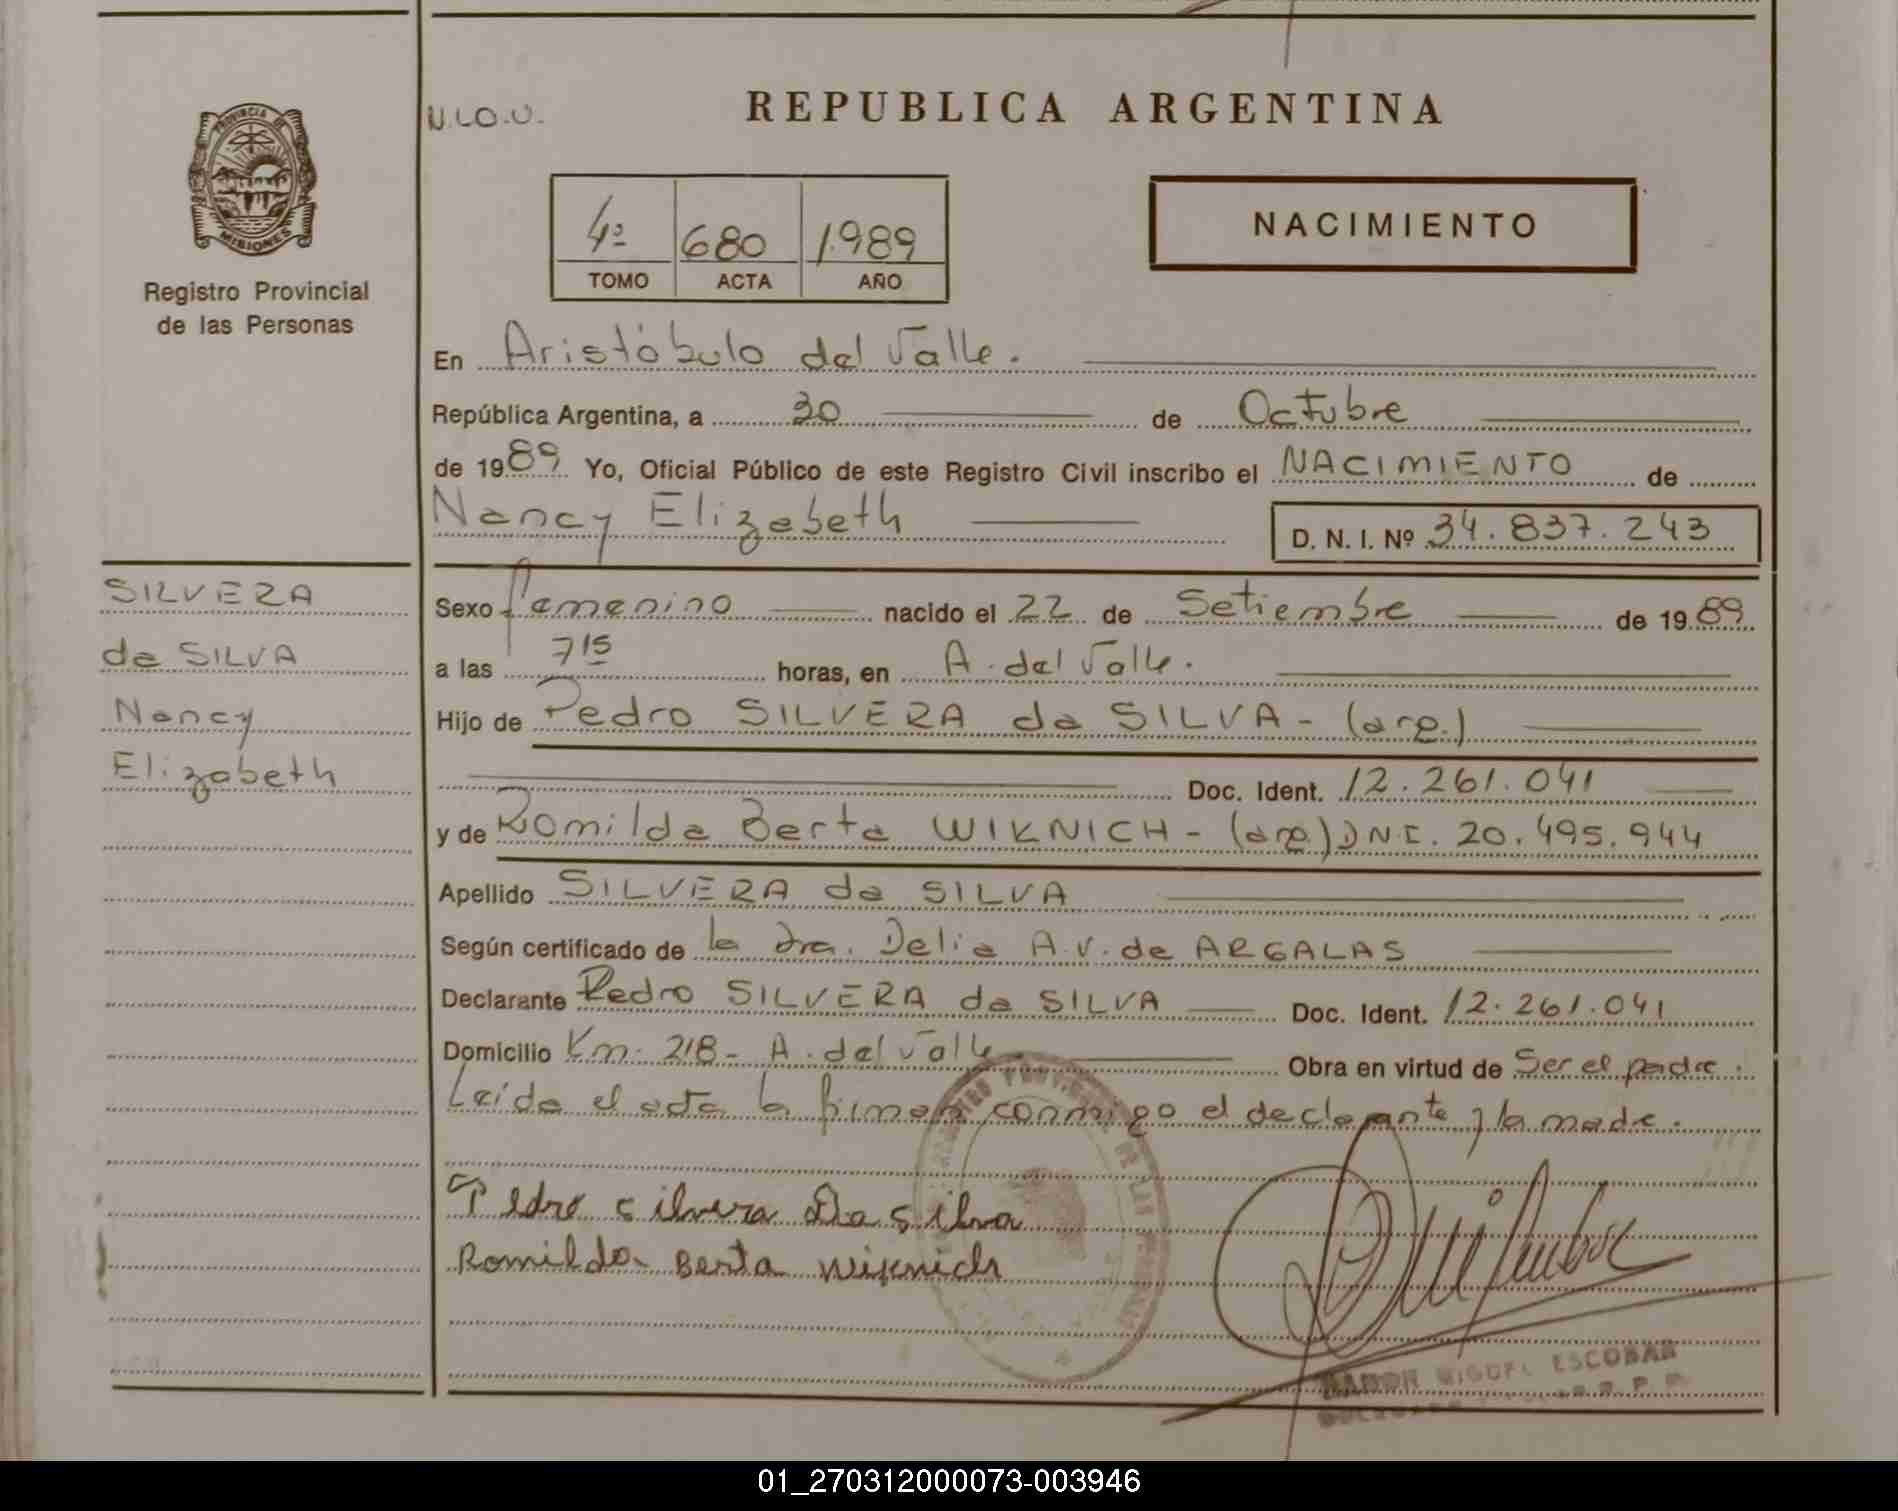 PROVINCIA DE
MISIONES
Registro Provincial
de las Personas
REPUBLICA ARGENTINA
4º 680 1.989
TOMO ACTA AÑO
NACIMIENTO
En Aristóbulo del Valle.
República Argentina, a 30 de Octubre
de 1989 Yo, Oficial Público de este Registro Civil inscribo el NACIMIENTO de
Nancy Elizabeth D. N. I. Nº 34.837.243
SILVERA
da SILVA
Nancy
Elizabeth
Sexo femenino nacido el 22 de Setiembre de 1989
a las 7 15 horas, en A. del Valle.
Hijo de Pedro SILVERA da SILVA - (arg.)
Doc. Ident. 12.261.041
y de Romilda Berta WIKNICH - (arg.) D.N.I. 20.495.944
Apellido SILVERA da SILVA
Según certificado de la Dra. Delia A.V. de ARGALAS
Declarante Pedro SILVERA da SILVA Doc. Ident. 12.261.041
Domicilio Km. 218 - A. del Valle Obra en virtud de Ser el padre.
Leída el acta la firman conmigo el declarante y la madre.
Pedro silvera Da silva
Romilda Berta Wiknich
MIGUEL ESCOBAR
01_270312000073-003946